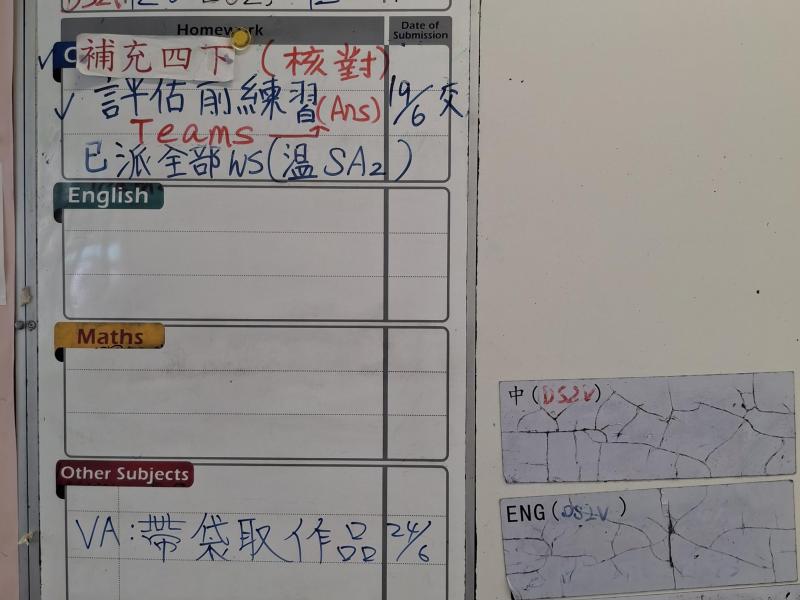 Homework
Date of Submission
補充四下 (核對)
評估前練習(Ans) 19/6 交
Teams
已派全部WS(溫SA2)
English
Maths
Other Subjects
VA:帶袋取作品 24/6
中(DS2V)
ENG(DS2V)